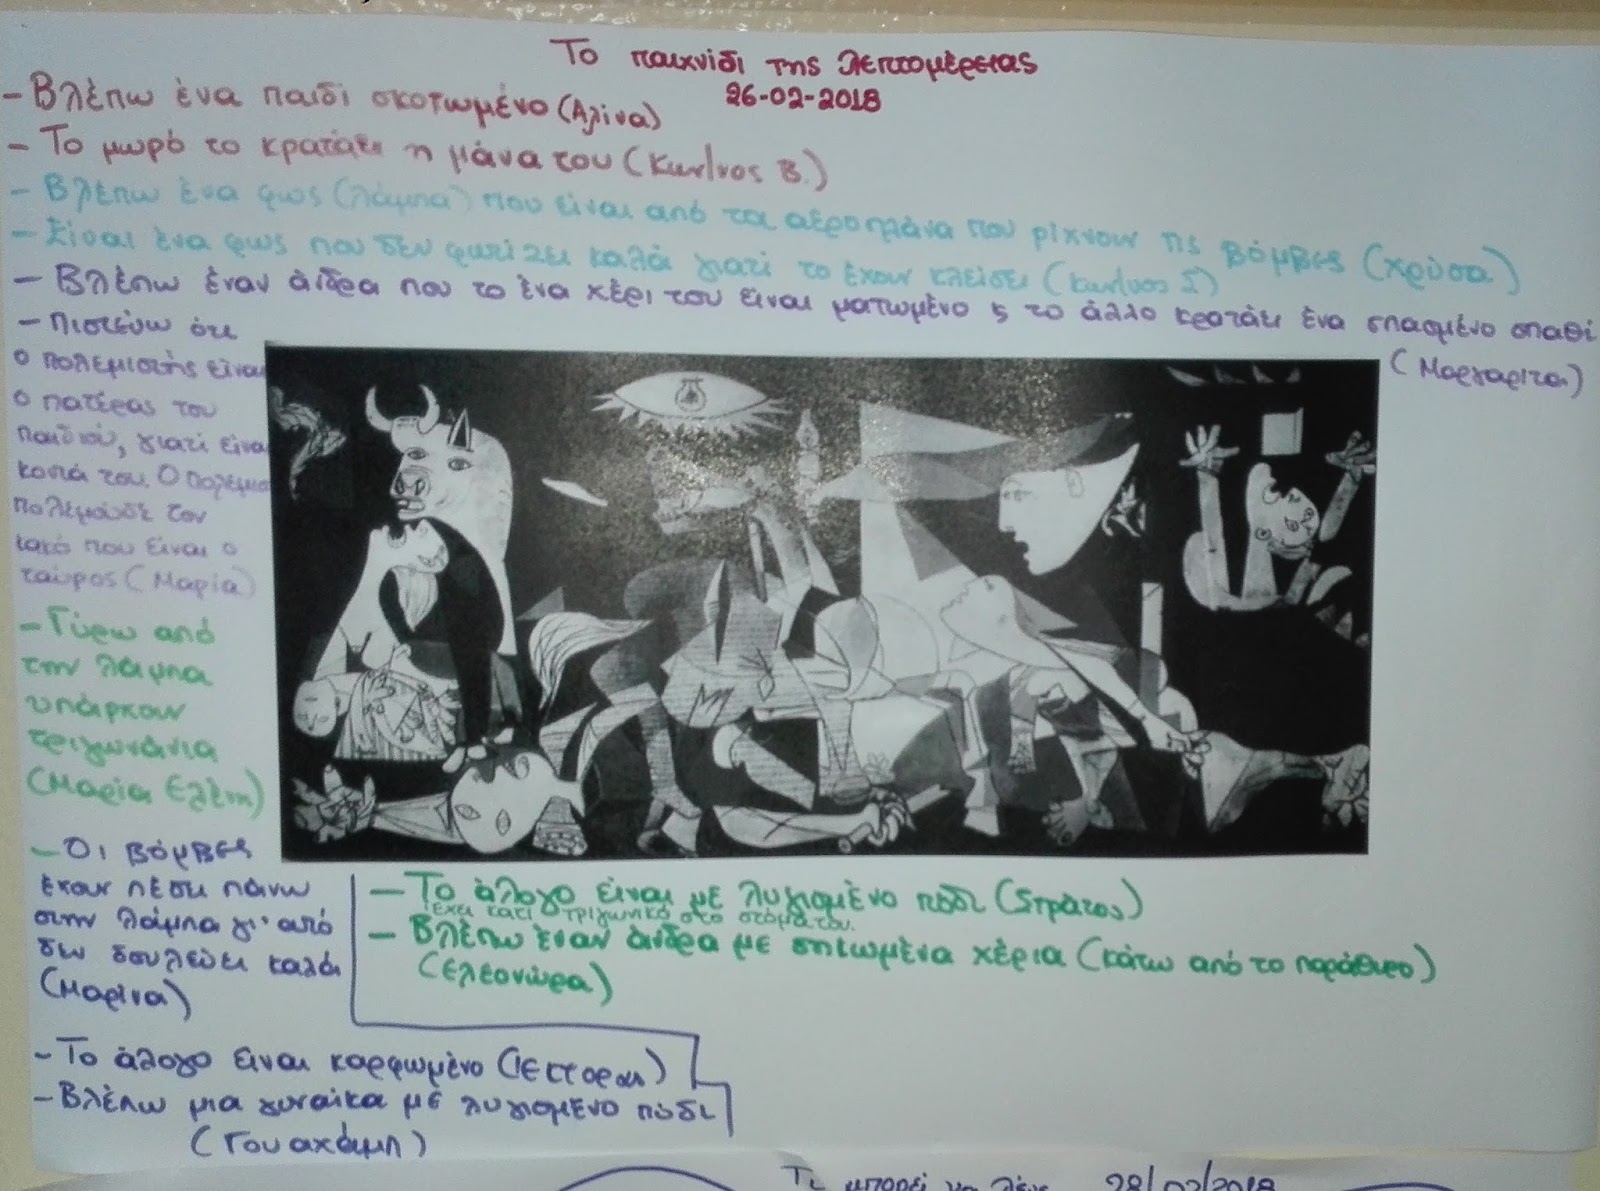 Το παιχνίδι της λεπτομέρειας
26-02-2018
- Βλέπω ένα παιδί σκοτωμένο (Αλίνα)
- Το μωρό το κρατάει η μάνα του (Κων/νος Β.)
- Βλέπω ένα φως (λάμπα) που είναι από τα αεροπλάνα που ρίχνουν τις βόμβες (Χρύσα)
- Είναι ένα φως που δεν φωτίζει καλά γιατί το έχουν κλείσει (Κων/νος Σ)
- Βλέπω έναν άνδρα που το ένα χέρι του είναι ματωμένο ς το άλλο κρατάει ένα σπασμένο σπαθί
(Μαργαρίτα)
- Πιστεύω ότι
ο πολεμιστής είναι
ο πατέρας του
παιδιού, γιατί είναι
κοντά του. Ο πολεμισ
πολεμούσε τον
κακό που είναι ο
ταύρος (Μαρία)
- Γύρω από
την λάμπα
υπάρχουν
τριγωνάκια
(Μαρία Ελένη)
- Οι βόμβες
έχουν πέσει πάνω
στην λάμπα γι' αυτό
δεν δουλεύει καλά
(Μαρίνα)
- Το άλογο είναι με λυγισμένο πόδι (Στράτος)
έχει κάτι τριγωνικό στο στόμα του.
- Βλέπω έναν άνδρα με σηκωμένα χέρια (κάτω από το παράθυρο)
(Ελεονώρα)
- Το άλογο είναι καρφωμένο (Έκτορας)
- Βλέπω μια γυναίκα με λυγισμένο πόδι
(Γουαχάμπ)
Τι μπορεί να λένε 28/02/2018